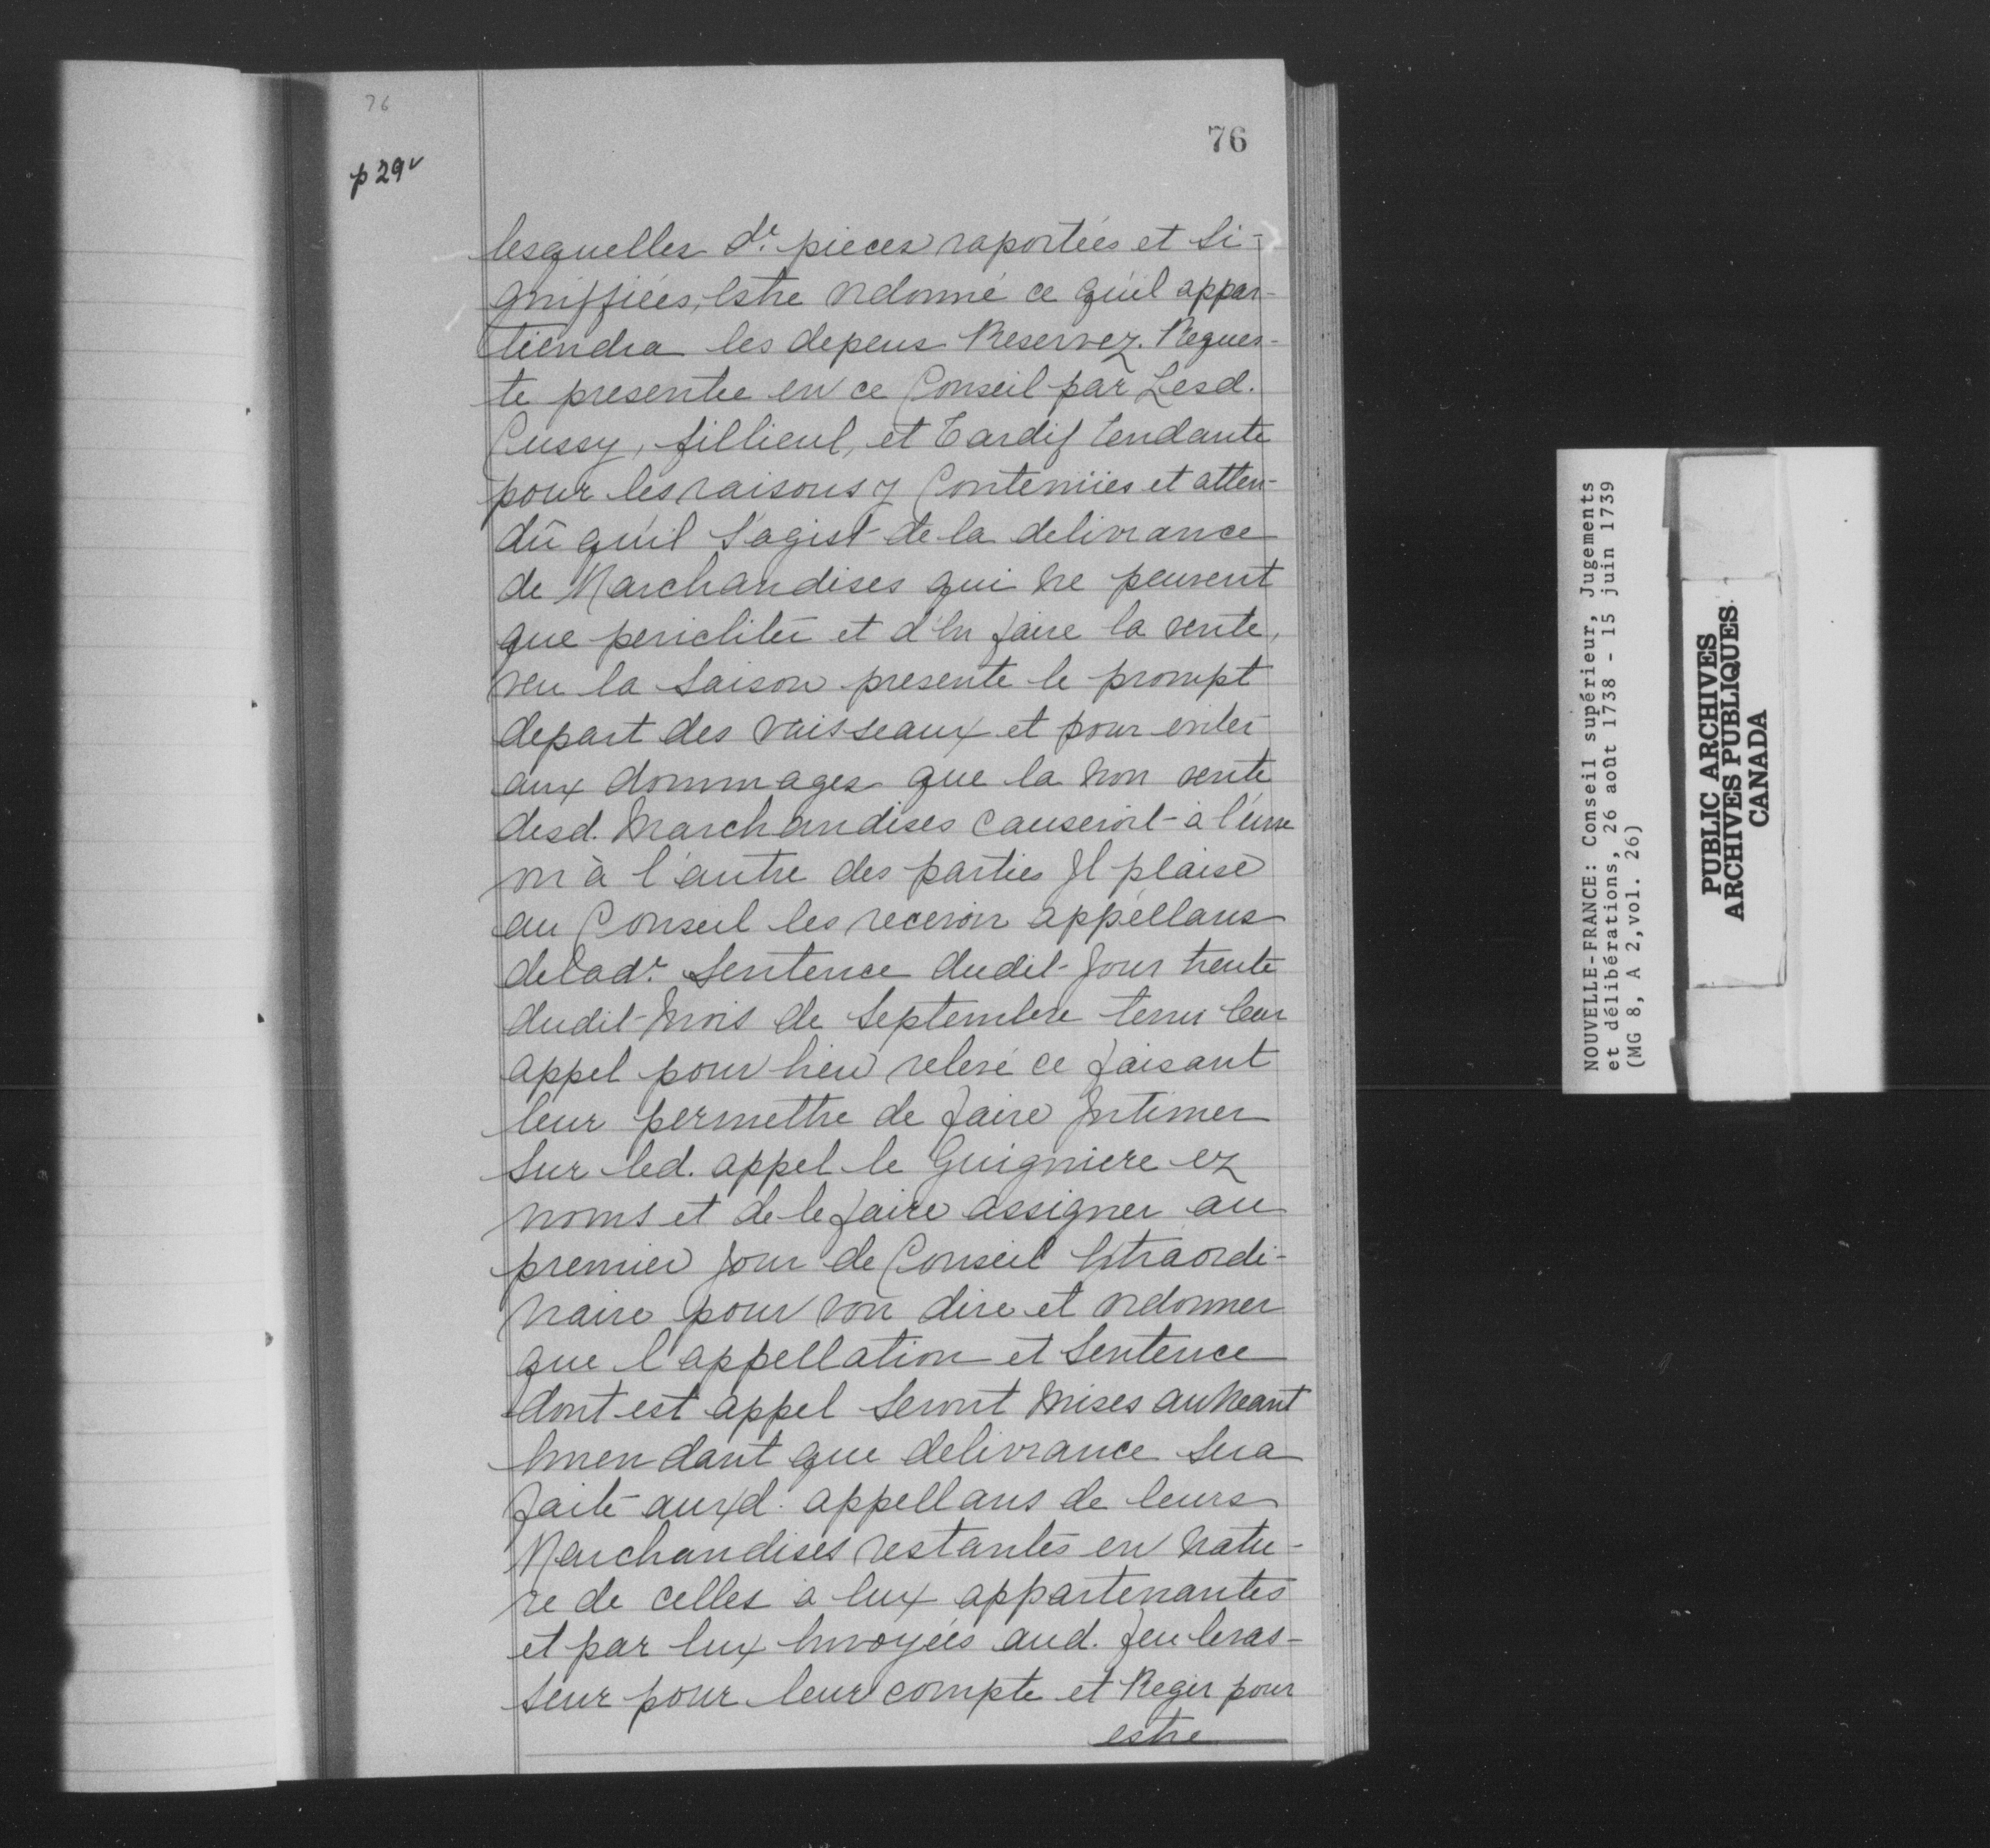 76
76
p 29v
lesquelles de. pieces raportées et si-
gniffiées, estre ordonné ce qu'il appar-
tiendra les depens Reservez. Reques-
te presentée en ce Conseil par Lesd.
Cussy, fillieul, et Tardif tendante
pour les raisons y Contenües et atten-
dû qu'il s'agist de la delivrance
de Marchandises qui ne peuvent
que pericliter et d'en faire la vente,
veu la saison presente le prompt
depart des vaisseaux et pour eviter
aux dommages que la non vente
desd. Marchandises causeroit à l'une
ou à l'autre des parties Il plaise
au Conseil les recevoir appellans
de lade. Sentence dudit Jour trente
dudit mois de septembre tenir leur
appel pour bien relevé ce faisant
leur permettre de faire Intimer
sur led. appel le Guigniere ez
noms et de le faire assigner au
premier Jour de Conseil Extraordi-
naire pour voir dire et ordonner
que l'appellation et Sentence
dont est appel seront mises au neant
Emendant que delivrance sera
faite auxd. appellans de leurs
Marchandises restantes en natu-
re de celles à eux appartenantes
et par eux Envoyées aud. feu levas-
seur pour leur compte et Regir pour
estre
NOUVELLE-FRANCE: Conseil supérieur, Jugements
et délibérations, 26 août 1738 - 15 juin 1739
(MG 8, A 2,vol. 26)
PUBLIC ARCHIVES
ARCHIVES PUBLIQUES
CANADA